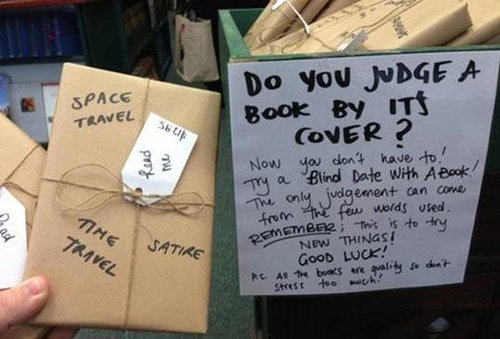 SPACE
TRAVEL
Read
me
TIME
TRAVEL
SATIRE
DO YOU JUDGE A
BOOK BY ITS
COVER?
Now you don't have to!
Try a Blind Date With A Book!
The only judgement can come
from the few words used.
REMEMBER; this is to try
NEW THINGS!
GOOD LUCK!
P.S. All the books are quality so don't
stress too much!